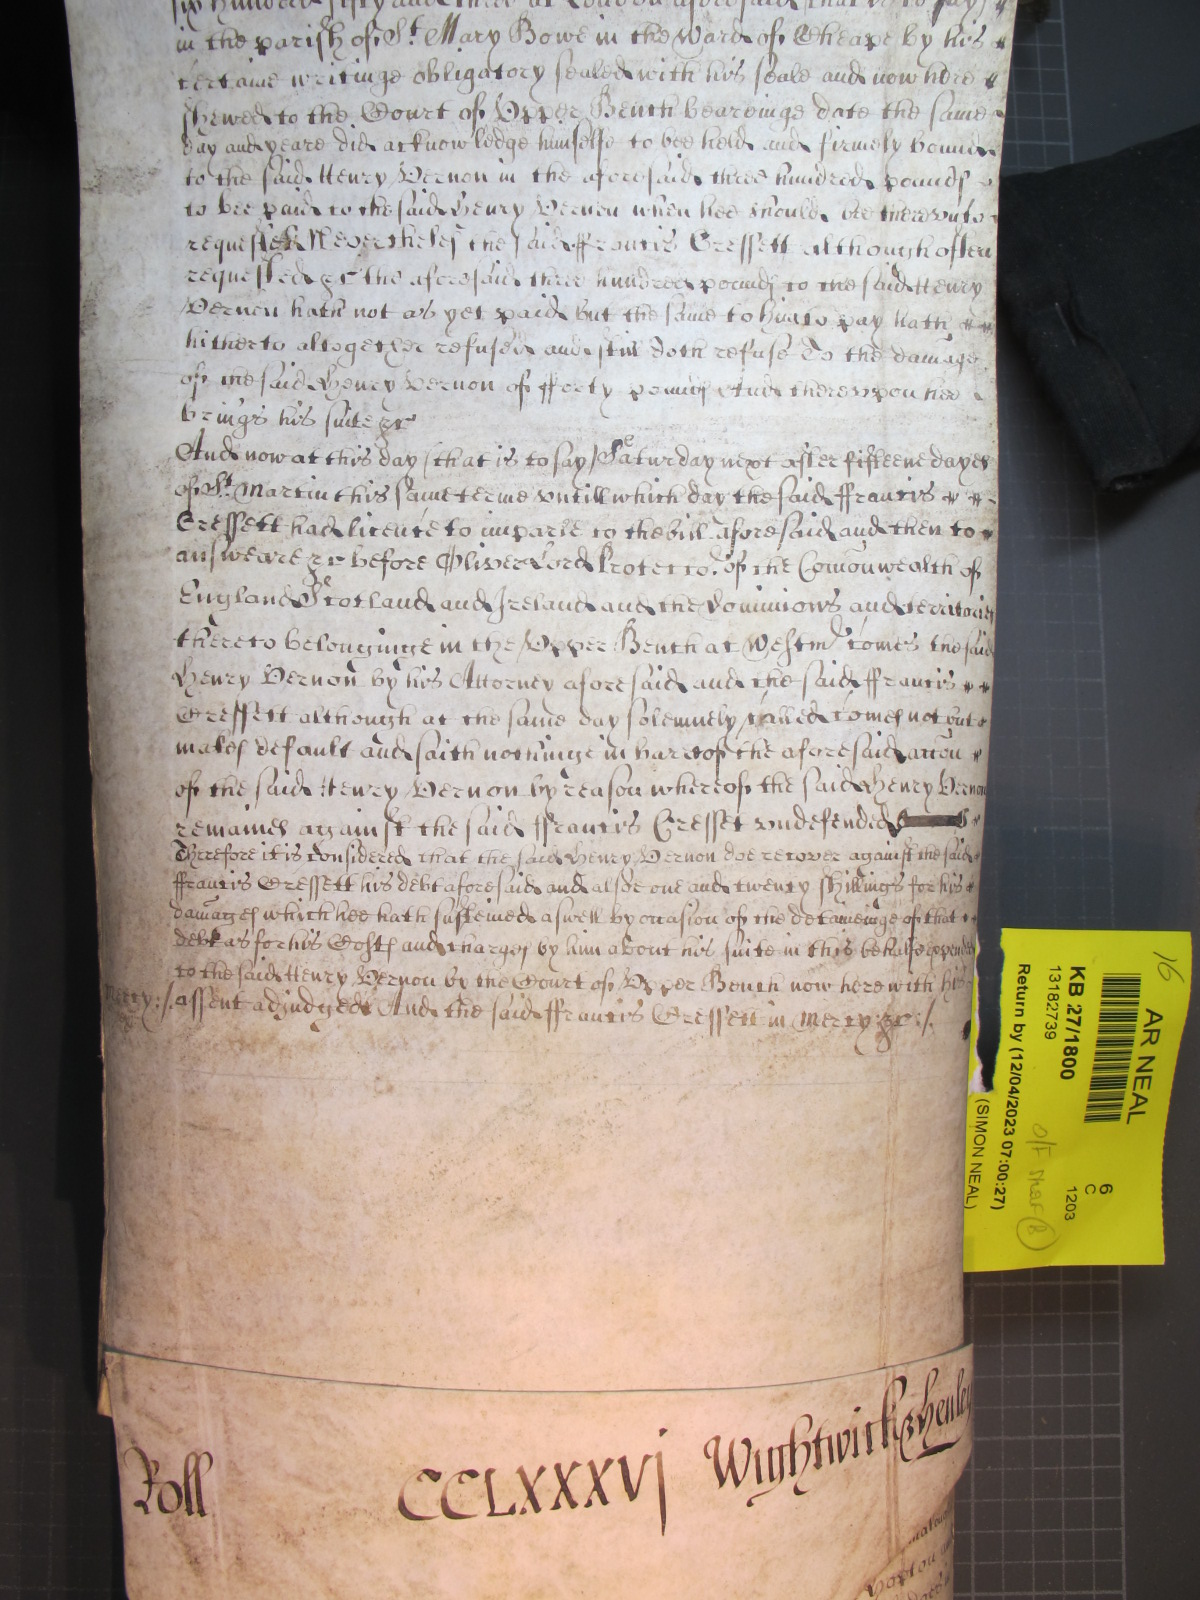 six hundred fifty and three at London aforesaid that is to say
in the parish of St Mary Bowe in the Ward of Cheape by his
certaine writinge obligatory sealed with his seale and now here
shewed to the Court of Upper Bench beareinge date the same
day and yeare did acknowledge himselfe to bee held and firmely bound
to the said Henry Vernon in the aforesaid three hundred pounds
to bee paid to the said Henry Vernon when hee should bee thereunto
requested Neverthelesse the said ffrancis Cressett although often
requested &c the aforesaid three hundred pounds to the said Henry
Vernon hath not as yet paid but the same to him to pay hath
hitherto altogether refused and still doth refuse To the damage
of the said Henry Vernon of fforty pounds And thereupon hee
brings his suite &c
And now at this day (that is to say) Saturday next after fifteene dayes
of St Martin this same terme untill which day the said ffrancis
Cressett had licence to imparle to the bill aforesaid and then to
answeare &c before Oliver Lord Protector of the Comonwealth of
England Scotland and Ireland and the Dominions and territories
thereto belonginge in the Upper Bench at Westmr comes the said
Henry Vernon by his Attorney aforesaid and the said ffrancis
Cressett although at the same day solemnely called comes not but
makes default and saith nothinge in barre of the aforesaid accon
of the said Henry Vernon by reason whereof the said Henry Vernon
remaines against the said ffrancis Cresset undefended
Therefore it is considered that the said Henry Vernon doe recover against the said
ffrancis Cressett his debt aforesaid and alsoe one and twenty shillings for his
damages which hee hath susteined aswell by occasion of the detaineinge of that
debt as for his Costs and charges by him about his suite in this behalfe expended
to the said Henry Vernon by the Court of Upper Bench now here with his
mercy:/ assent adjudged And the said ffrancis Cressett in mercy &c:/.
Roll CCLXXXVj Wightwick & Henley
16
AR NEAL
KB 27/1800
13182739
Return by (12/04/2023 07:00:27)
(SIMON NEAL)
6
C
1203